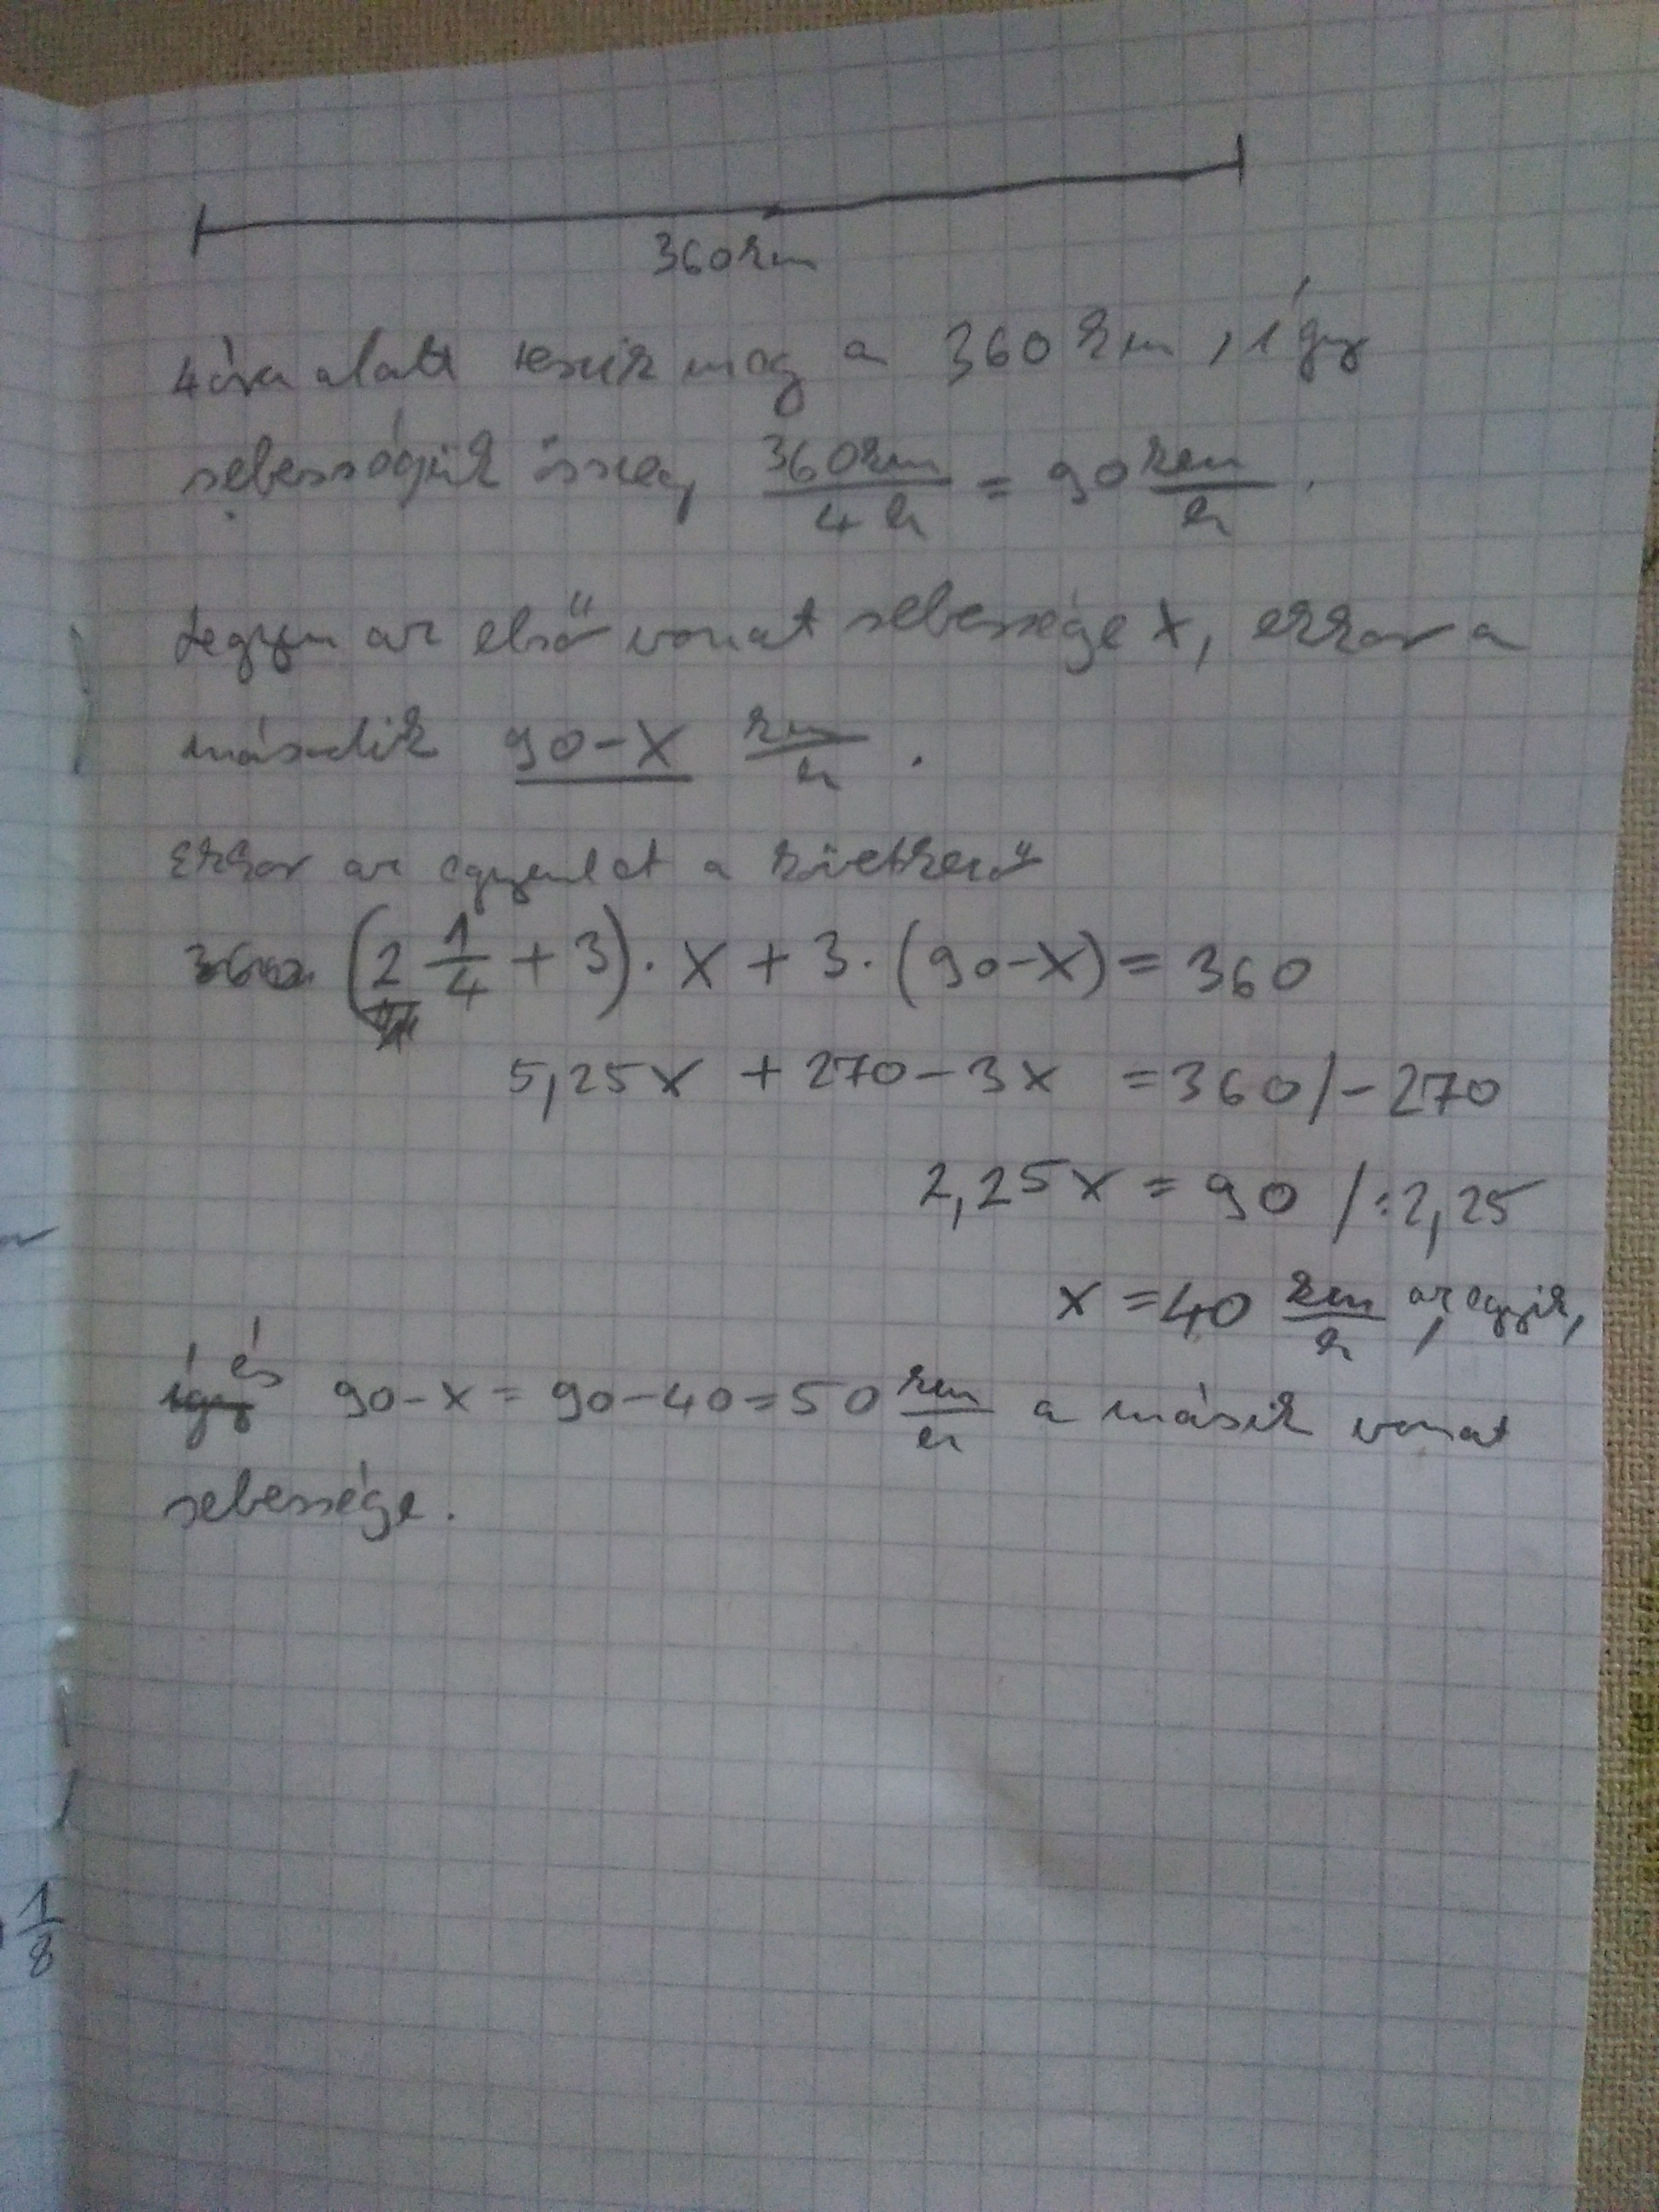 360 km
4 óra alatt teszik meg a 360 km, így
sebességük összeg 360km/4h = 90 km/h.
Legyen az első vonat sebessége x, ekkor a
második 90-x km/h.
Ekkor az egyenlet a következő
(2 1/4 + 3)·x + 3·(90-x) = 360
5,25x + 270 - 3x = 360 /-270
2,25x = 90 /:2,25
x = 40 km/h az egyik,
így és 90-x = 90-40 = 50 km/h a másik vonat
sebessége.
1/8